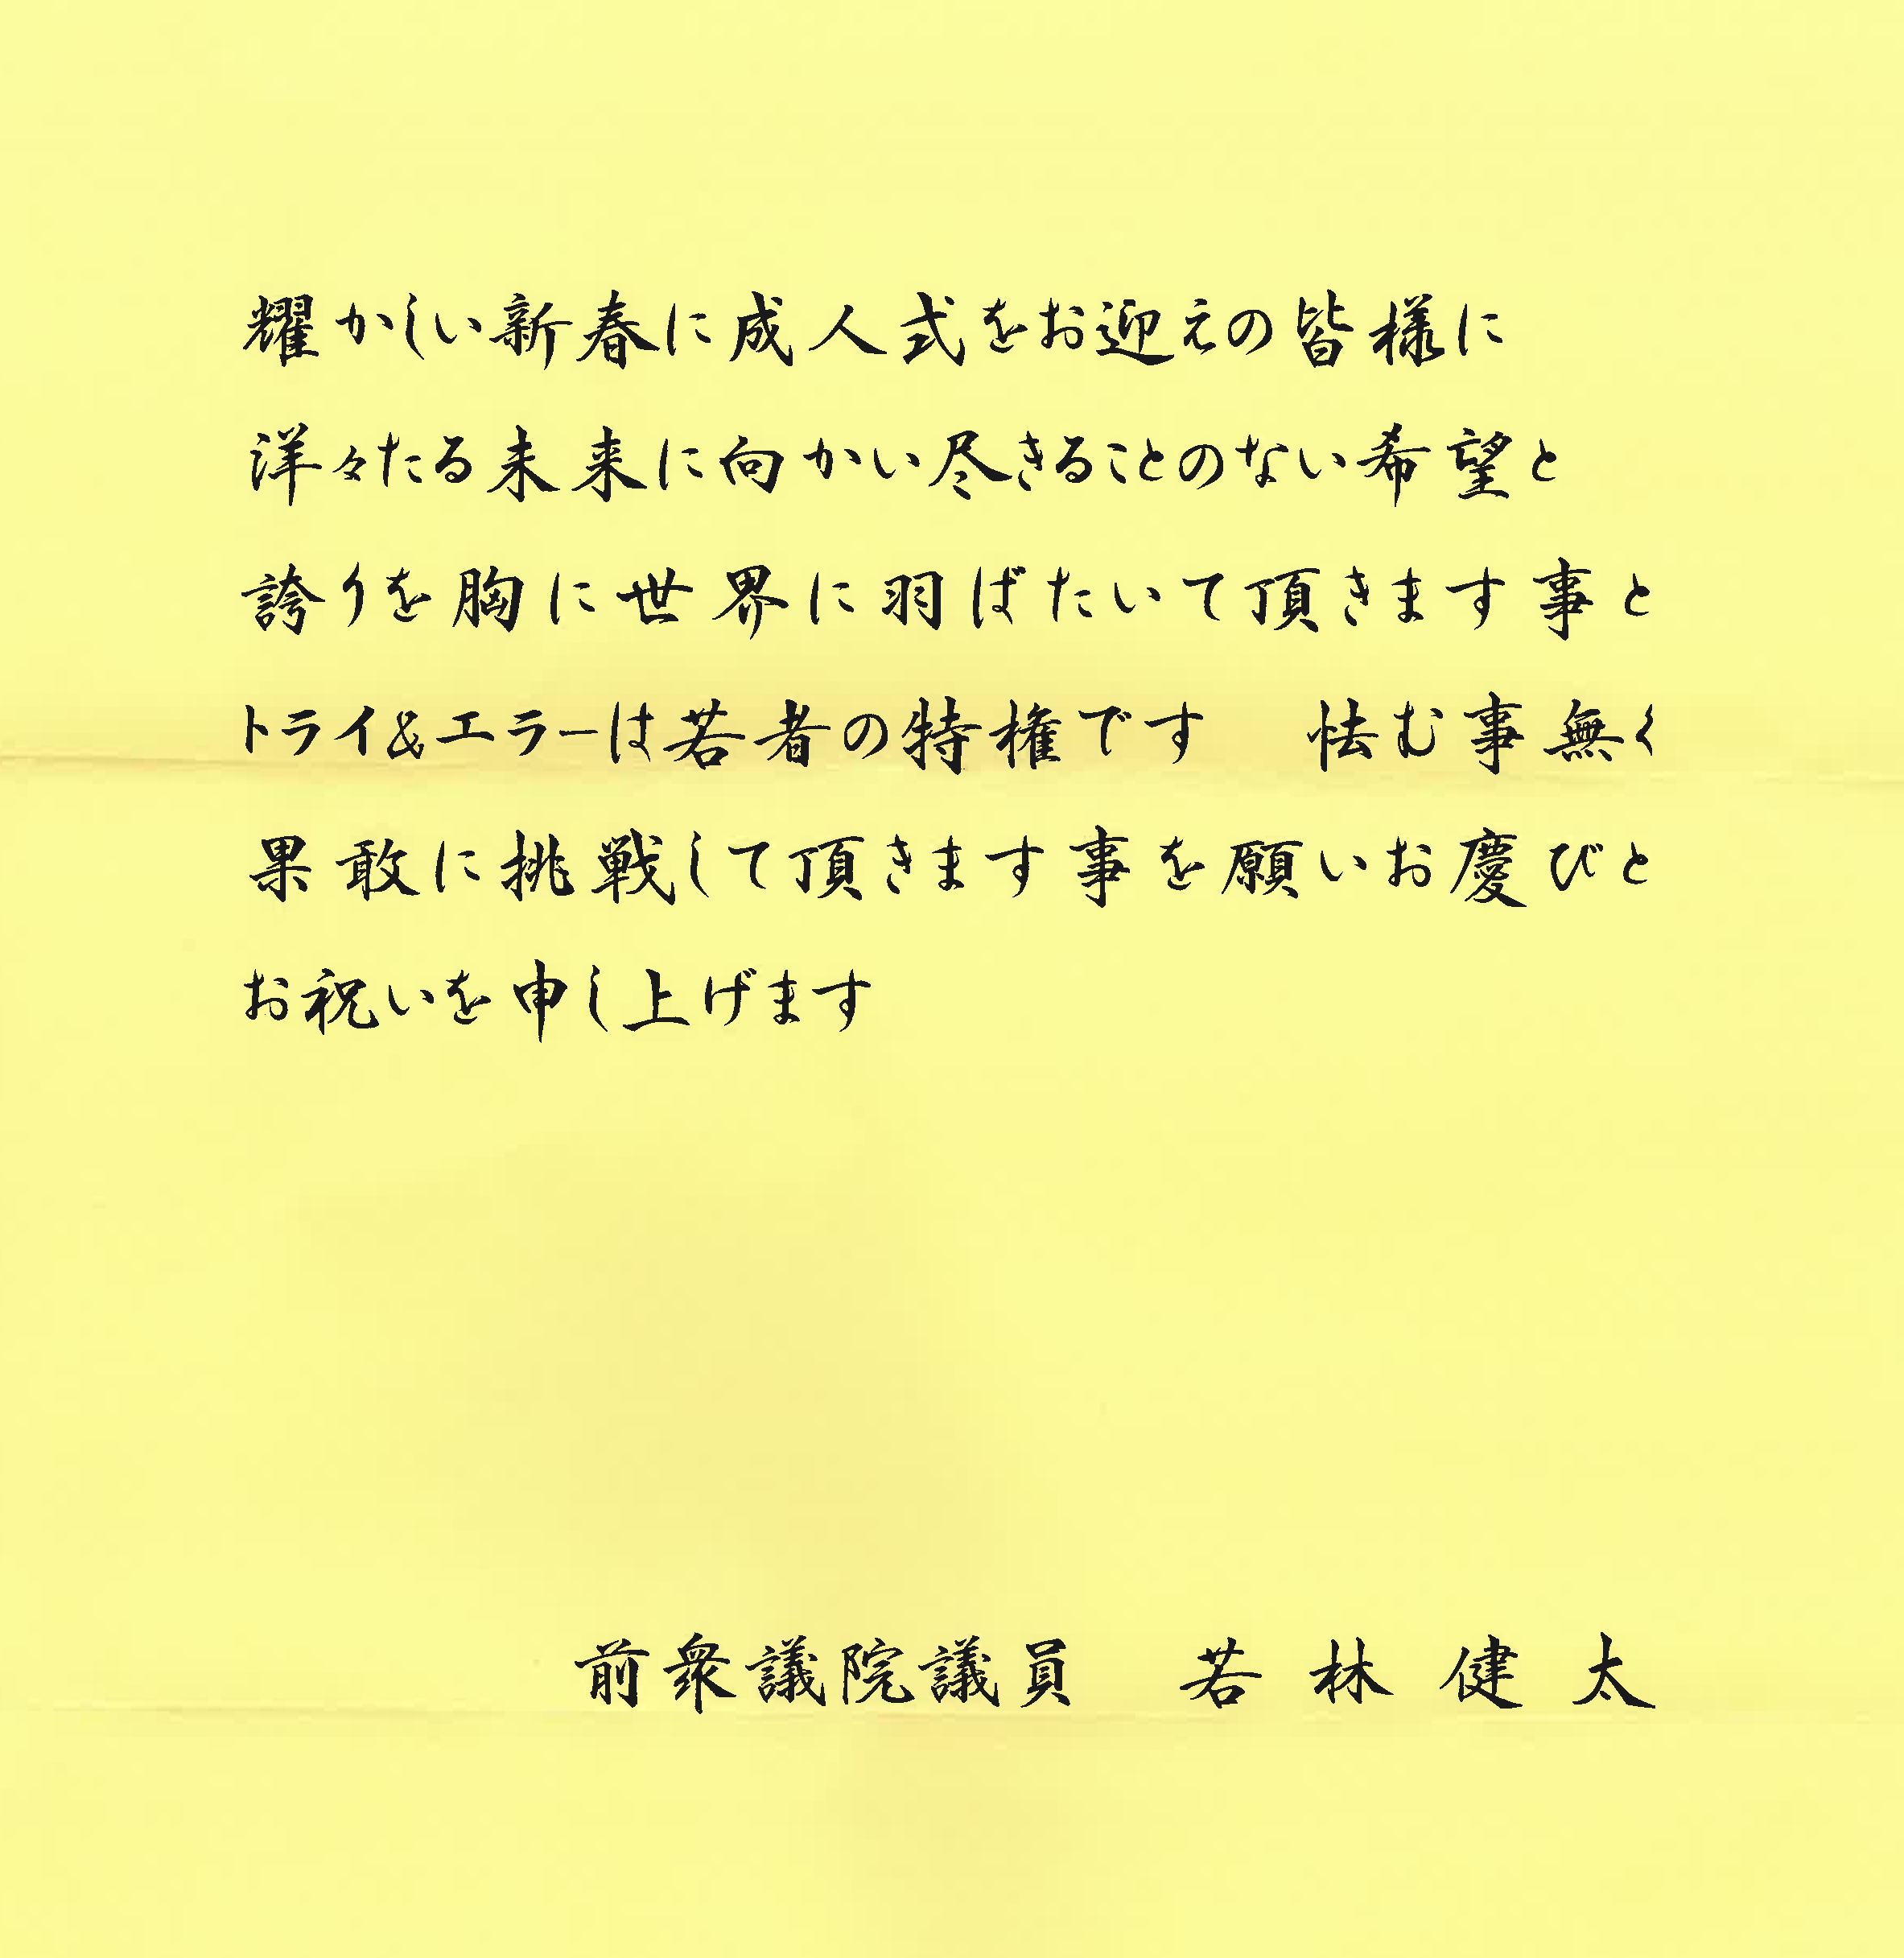 耀かしい新春に成人式をお迎えの皆様に
洋々たる未来に向かい尽きることのない希望と
誇りを胸に世界に羽ばたいて頂きます事と
トライ&エラーは若者の特権です　怯む事無く
果敢に挑戦して頂きます事を願いお慶びと
お祝いを申し上げます
前衆議院議員　若林健太